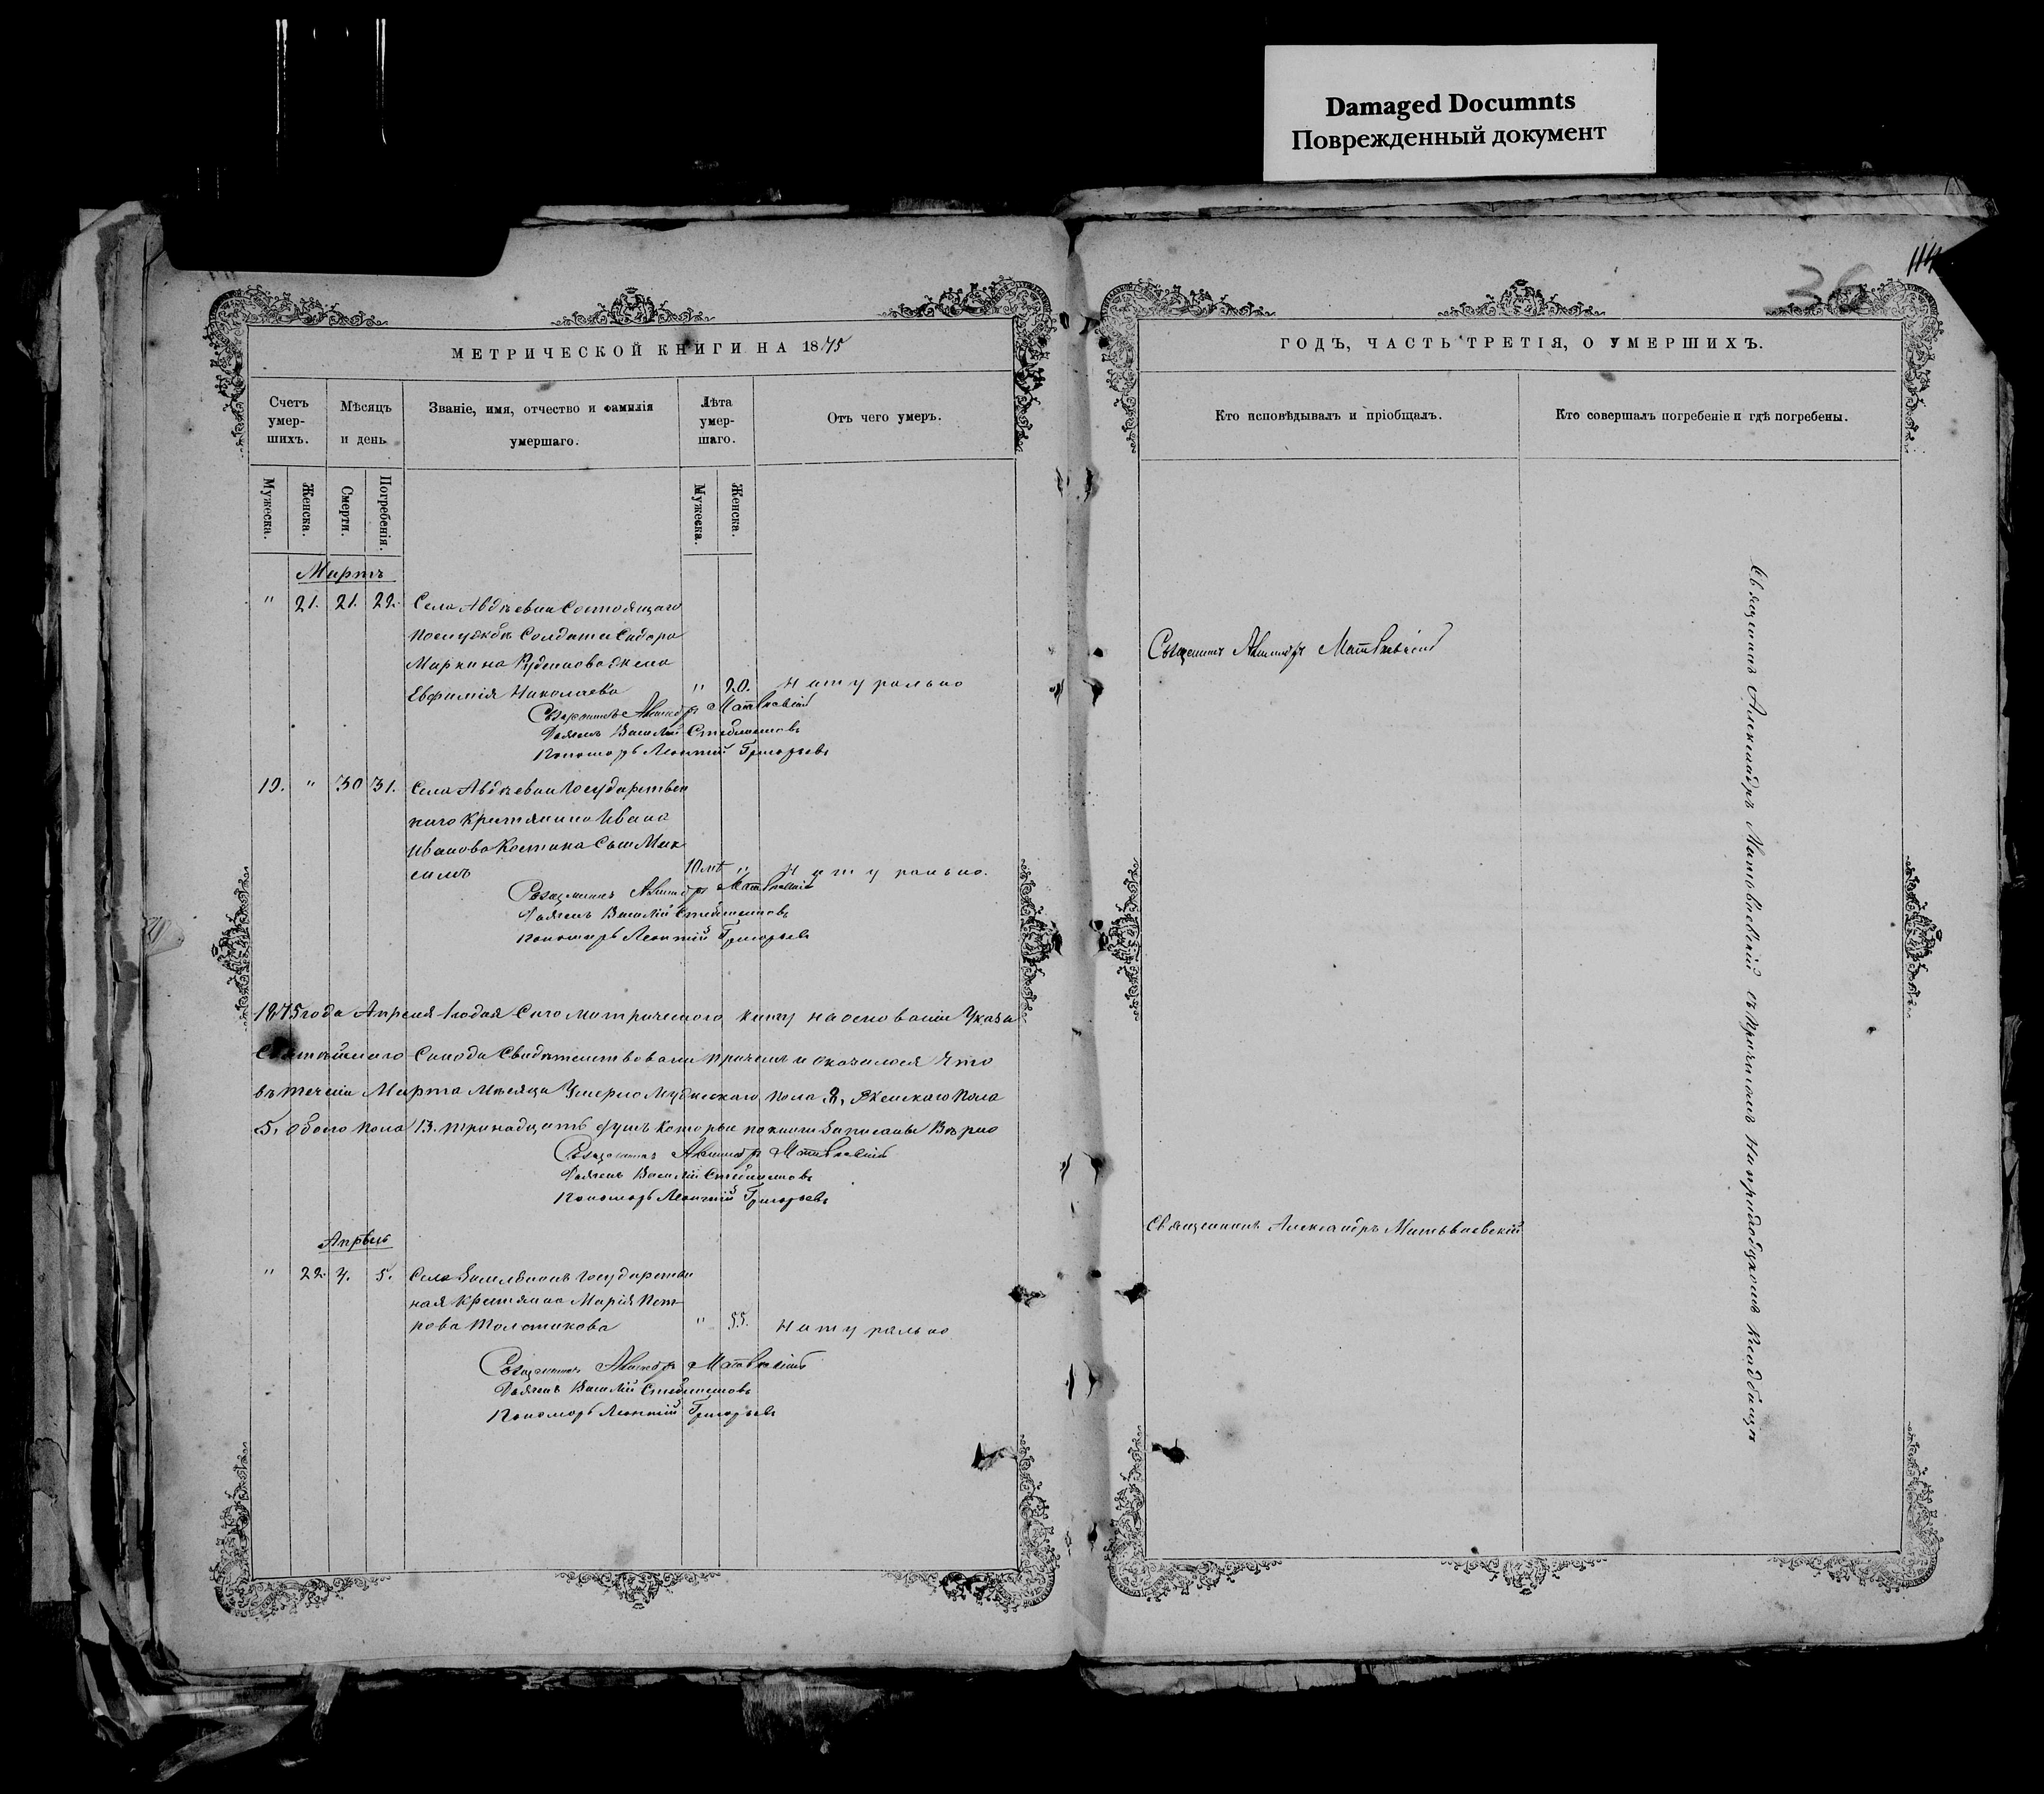 Damaged Documnts
Поврежденный документ
114
36
МЕТРИЧЕСКОЙ КНИГИ НА 1875
ГОДЪ, ЧАСТЬ ТРЕТІЯ, О УМЕРШИХЪ.
Счетъ умер-шихъ.
Мѣсяцъ и день
Званіе, имя, отчество и фамилія умершаго.
Лѣта умер-шаго.
Отъ чего умеръ.
Кто исповѣдывалъ и пріобщалъ.
Кто совершалъ погребеніе и гдѣ погребены.
Мужеска.
Женска.
Смерти.
Погребенія.
Мужеска.
Женска.
Мартъ
" 21. 21. 22. Села Авдѣевки Состоящаго
по службѣ Солдата Сидора
Маркина жена
Евфимія Николаева " 20. натурально
Священникъ Александръ Матвѣевскій
Василій
Пономарь Леонтій Григорьевъ
Священникъ Александръ Матвѣевскій
19. " 30 31. Села Авдѣевки Государствен
наго Крестянина Ивана
Иванова Костина Сынъ Мак
симъ 10 лѣт " натурально.
Священникъ Александръ Матвѣевскій
Василій
Пономарь Леонтій Григорьевъ
1875 года Апреля 1 годая Сию Метрическую книгу на основаніи Указа
Святѣйшаго Синода Свидѣтельствовали причемъ и оказалося Что
въ теченіи Марта Мѣсяца Умерло Мужескаго пола 8, Женскаго пола
5. обоего пола 13. тринадцать душъ которые по книги записаны Вѣрно
Священникъ Александръ Матвѣевскій
Василій
Пономарь Леонтій Григорьевъ
Апрѣль
" 22. 4. 5. Села Государствен
ная Крестянка Марія Пет
рова Толстикова " 55. натурально
Священникъ Александръ Матвѣевскій
Василій
Пономарь Леонтій Григорьевъ
Священникъ Александръ Матвѣевскій
Священникъ Александръ Матвѣевскій съ Причтомъ На приходскомъ Кладбищѣ